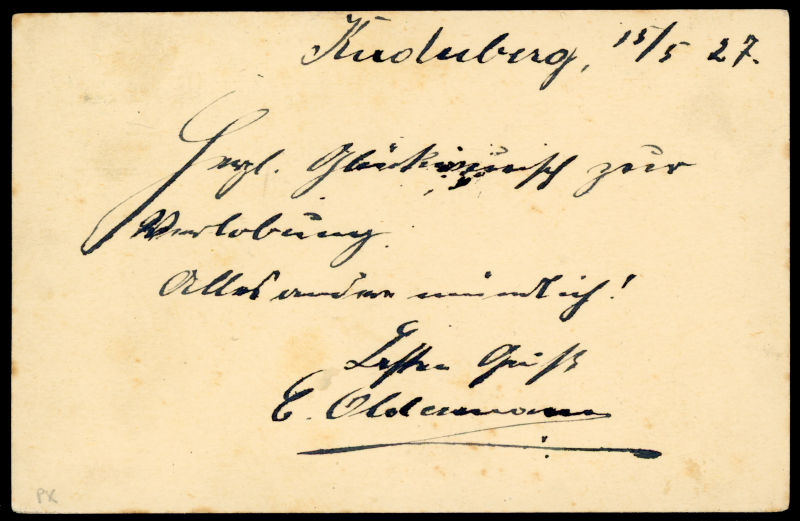 Kuduberg, 15/5 27.
Herzl. Glückwunsch zur
Verlobung
Alles andere mündlich!
Besten Gruß
E. Oldemann
PK